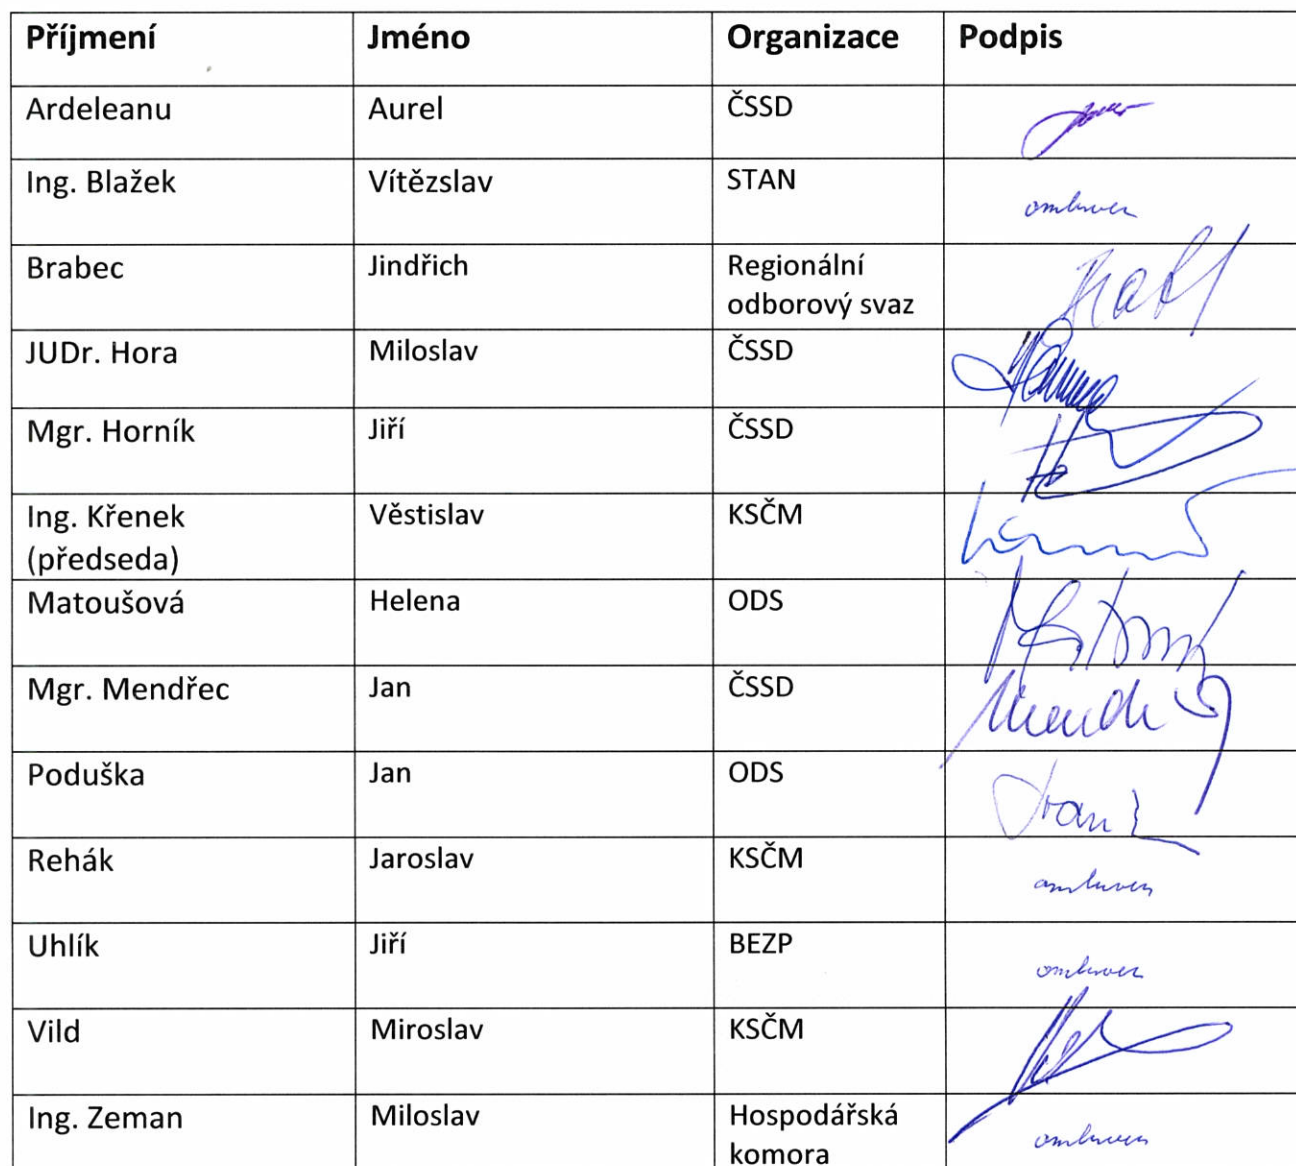 Příjmení Jméno Organizace Podpis
Ardeleanu Aurel ČSSD
Ing. Blažek Vítězslav STAN omluven
Brabec Jindřich Regionální
odborový svaz
JUDr. Hora Miloslav ČSSD
Mgr. Horník Jiří ČSSD
Ing. Křenek Věstislav KSČM
(předseda)
Matoušová Helena ODS
Mgr. Mendřec Jan ČSSD
Poduška Jan ODS
Rehák Jaroslav KSČM omluven
Uhlík Jiří BEZP omluven
Vild Miroslav KSČM
Ing. Zeman Miloslav Hospodářská
komora omluven